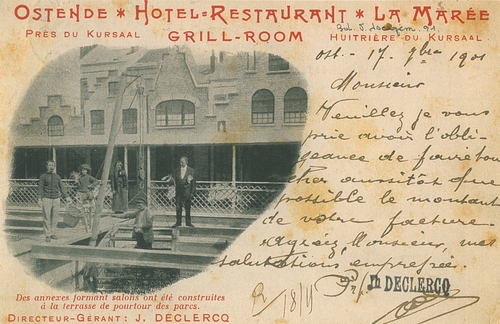 OSTENDE * HOTEL-RESTAURANT * LA MARÉE
PRÈS DU KURSAAL GRILL-ROOM HUITRIÈRE DU KURSAAL
ost. - 17. 9bre 1901
Monsieur
Veuillez je vous
prie avoir l'obli-
geance de faire
aussitôt que
possible le montant
de votre facture.
Agréez, Monsieur, mes
salutations empressées.
Jn DECLERCQ
18/11
Des annexes formant salons ont été construites
à la terrasse de pourtour des parcs.
DIRECTEUR-GÉRANT: J. DECLERCQ